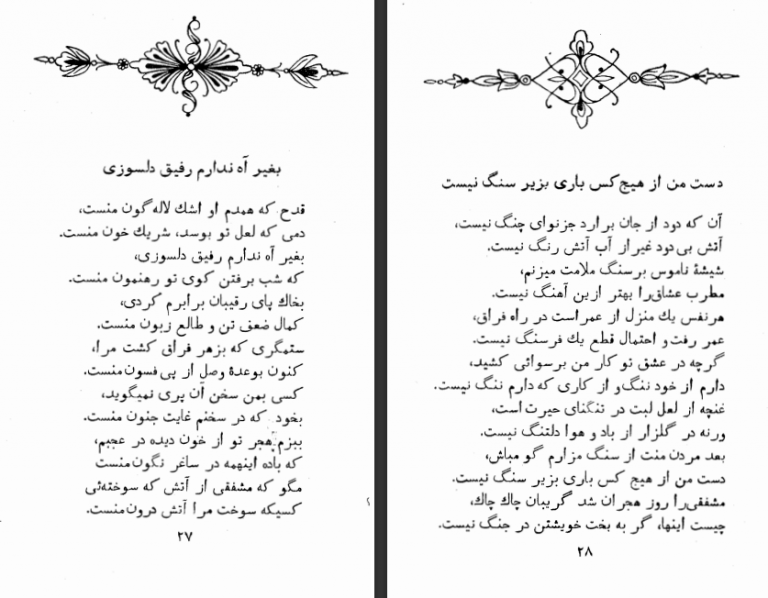 بغیر آه ندارم رفیق دلسوزی
قدح که همدم او اشك لاله‌گون منست،
دمی که لعل تو بوسد، شریك خون منست.
بغیر آه ندارم رفیق دلسوزی،
که شب برفتن کوی تو رهنمون منست.
بخاك پای رقیبان برابرم کردی،
کمال ضعف تن و طالع زبون منست.
ستمگری که بزهر فراق کشت مرا،
کنون بوعدهٔ وصل از پی فسون منست.
کسی بمن سخن آن پری نمیگوید،
بخود که در سخنم غایت جنون منست.
ببزم هجر تو از خون دیده در عجبم،
که باده اینهمه در ساغر نگون منست
مگو که مشفقی از آتش که سوخته‌ئی
کسیکه سوخت مرا آتش درون منست.
۲۷
دست من از هیچ کس باری بزیر سنگ نیست
آن که دود از جان برارد جز نوای چنگ نیست،
آتش بی‌دود غیر از آب آتش رنگ نیست.
شیشهٔ ناموس بر سنگ ملامت میزنم،
مطرب عشاق را بهتر ازین آهنگ نیست.
هر نفس یك منزل از عمر است در راه فراق،
عمر رفت و احتمال قطع یك فرسنگ نیست.
گرچه در عشق تو کار من برسوائی کشید،
دارم از خود ننگ و از کاری که دارم ننگ نیست.
غنچه از لعل لبت در تنگنای حیرت است،
ورنه در گلزار از باد و هوا دلتنگ نیست.
بعد مردن منت از سنگ مزارم گو مباش،
دست من از هیچ کس باری بزیر سنگ نیست.
مشفقی را روز هجران شد گریبان چاك چاك،
چیست اینها، گر به بخت خویشتن در جنگ نیست.
۲۸